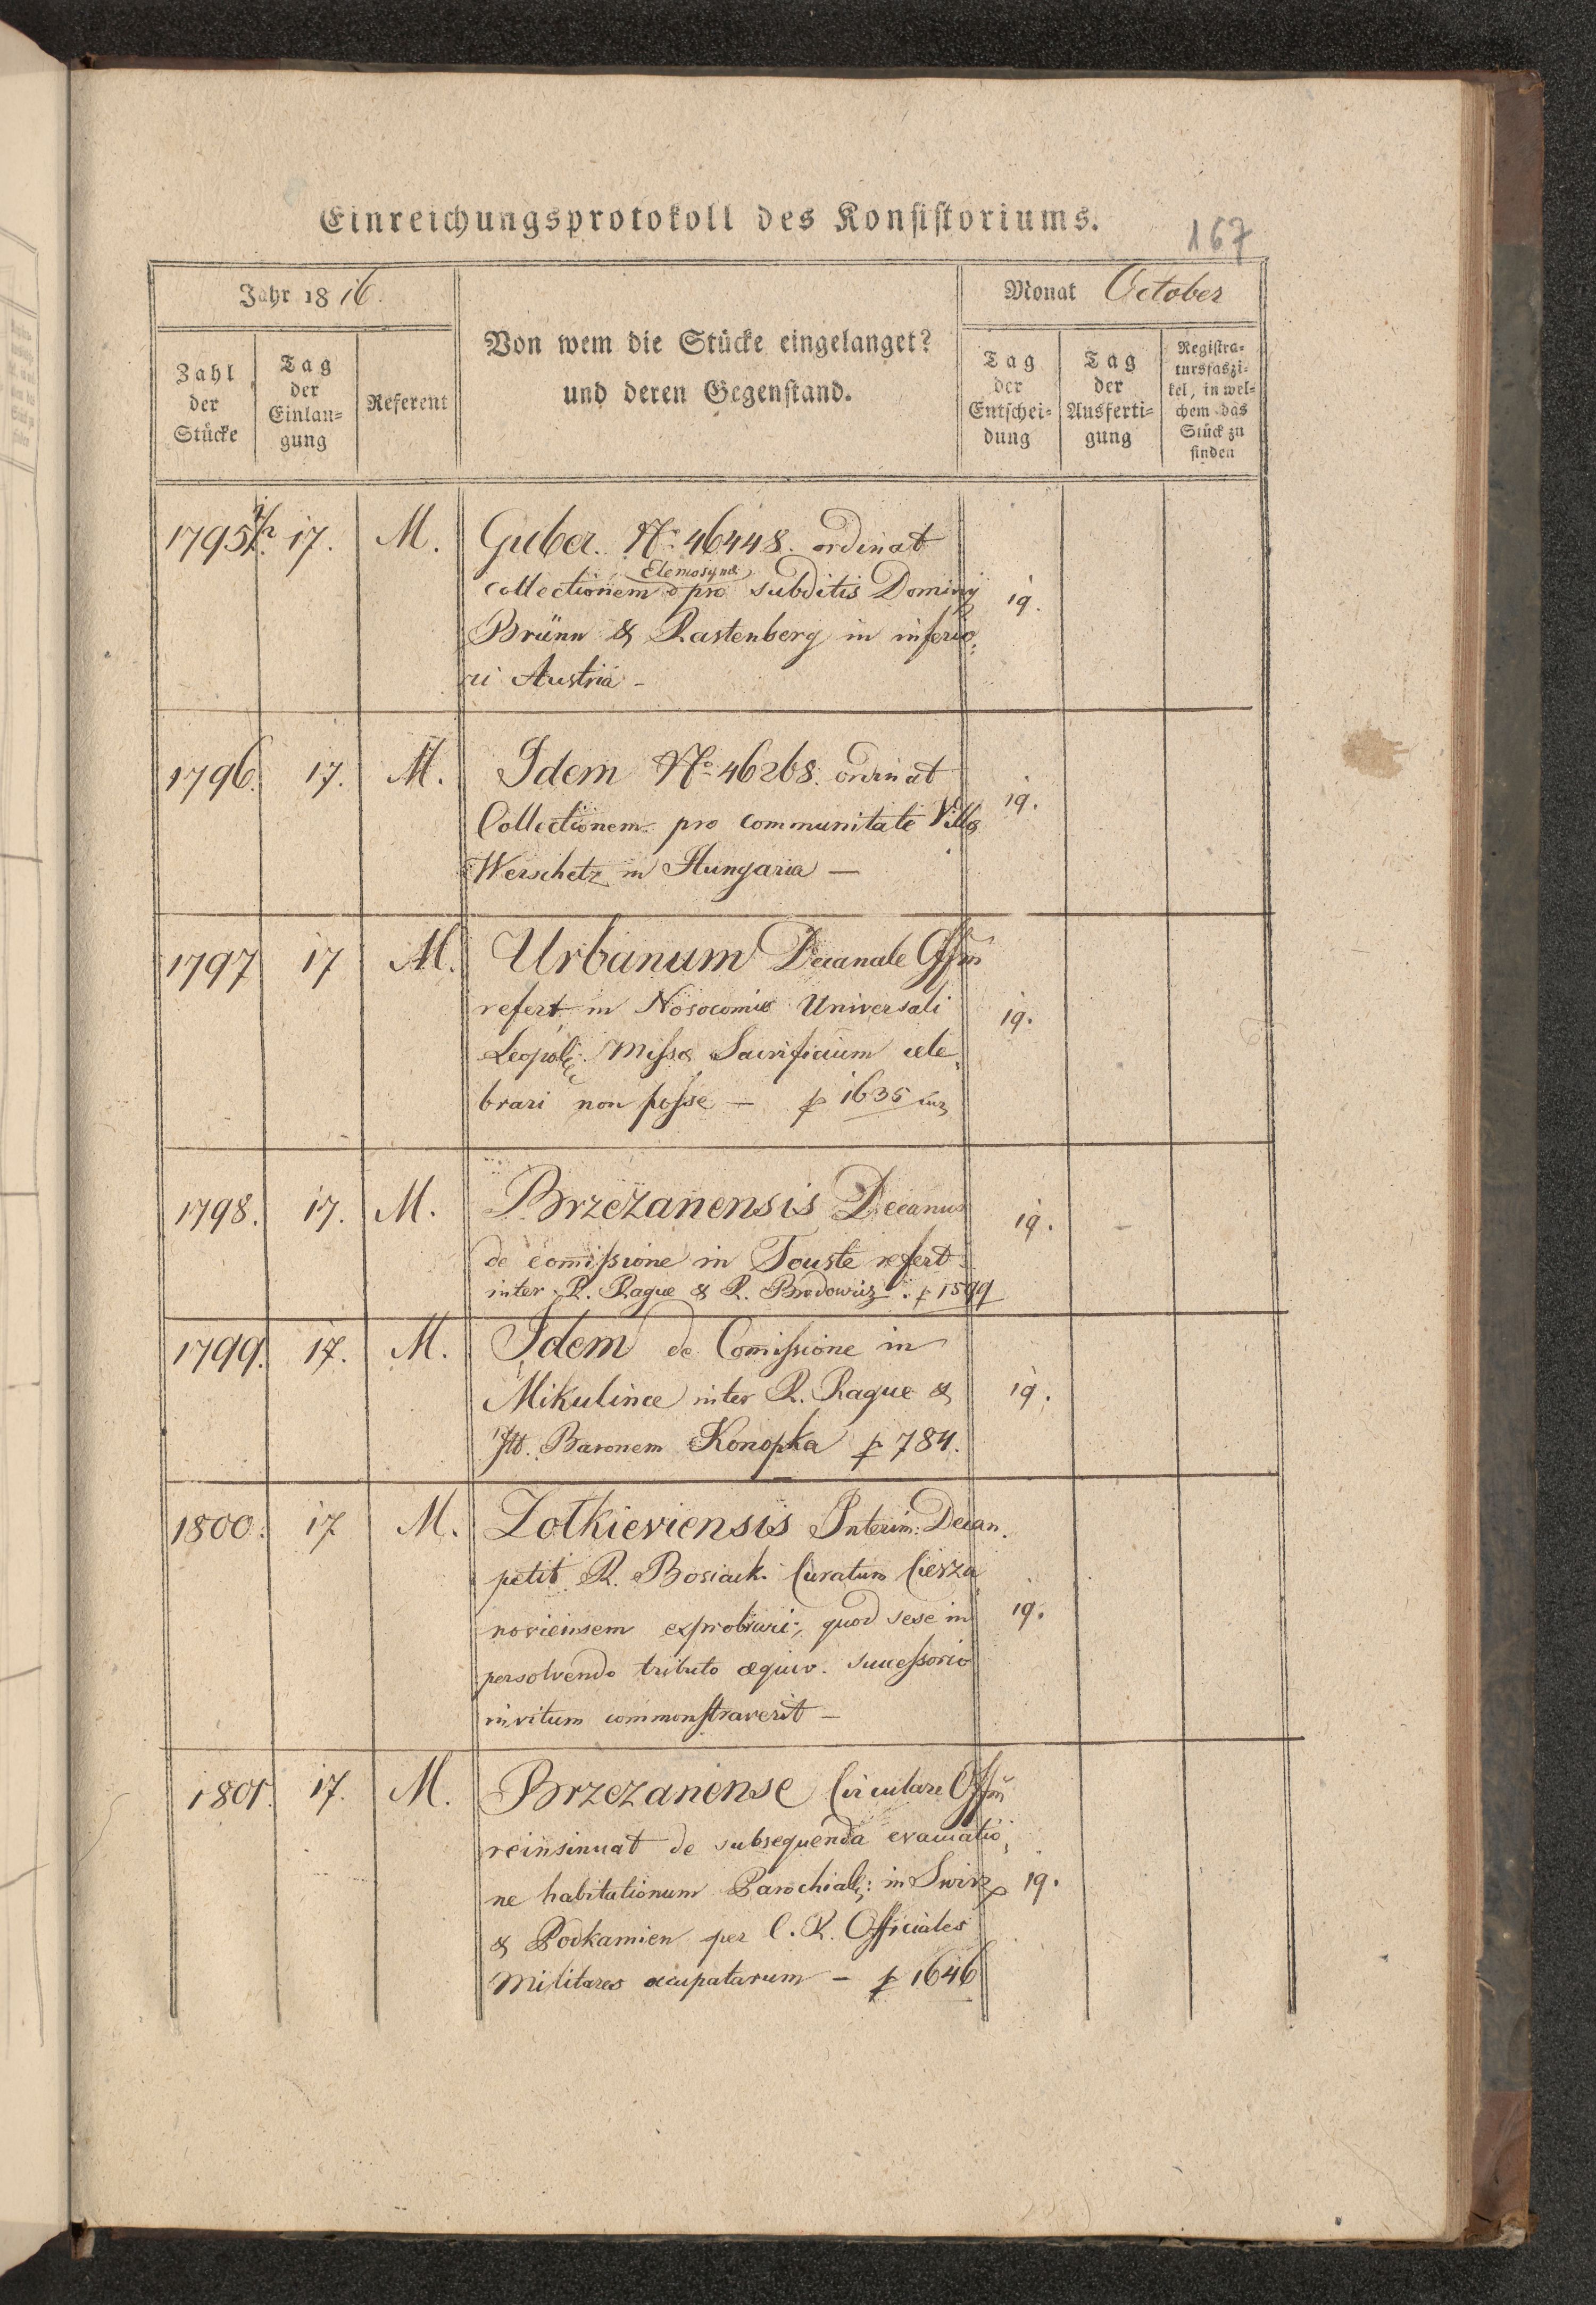 Einreichungsprotokoll des Konsistoriums.
167
Jahr 1816.
Monat October
Zahl der Stücke
Tag der Einlan=gung
Referent
Von wem die Stücke eingelanget?
und deren Gegenstand.
Tag der Entschei=dung
Tag der Ausferti=gung
Registra=tursfaszi=kel, in wel=chem das Stück zu finden
1795 17. M. Guber. No. 46448. ordinat
Elemosynæ
collectionem pro subditis Dominy
Brünn & Rastenberg in inferio=
ri Austria - 19.
1796. 17. M. Idem No. 46268. ordinat
Collectionem pro communitate Villæ
Werschetz in Hungaria — 19.
1797 17 M. Urbanum Decanale Offm
refert in Nosocomio Universali
Leopoli Missæ Sacrificium cele=
brari non posse — p 1635 19.
1798. 17. M. Brzezanensis Decanus
de comissione in Touste refert
inter R. Rague & R. Brodowicz. p 1599 19.
1799. 17. M. Idem de Comissione in
Mikulince inter R. Rague &
Baronem Konopka p 784. 19.
1800. 17 M. Zolkieviensis Interim: Decan.
petit R. Bosiack Curatum Cieszа
noviensem exprobrari, quod sese in
persolvendo tributo æquiv. successorio
invitum commonstraverit — 19.
1801. 17. M. Brzezanense Circulare Offm
reinsinuat de subsequenda evacuatio=
ne habitationum Parochial: in Swirz
& Podkamien per C. R. Officiales
Militares occupatarum — p 1646 19.